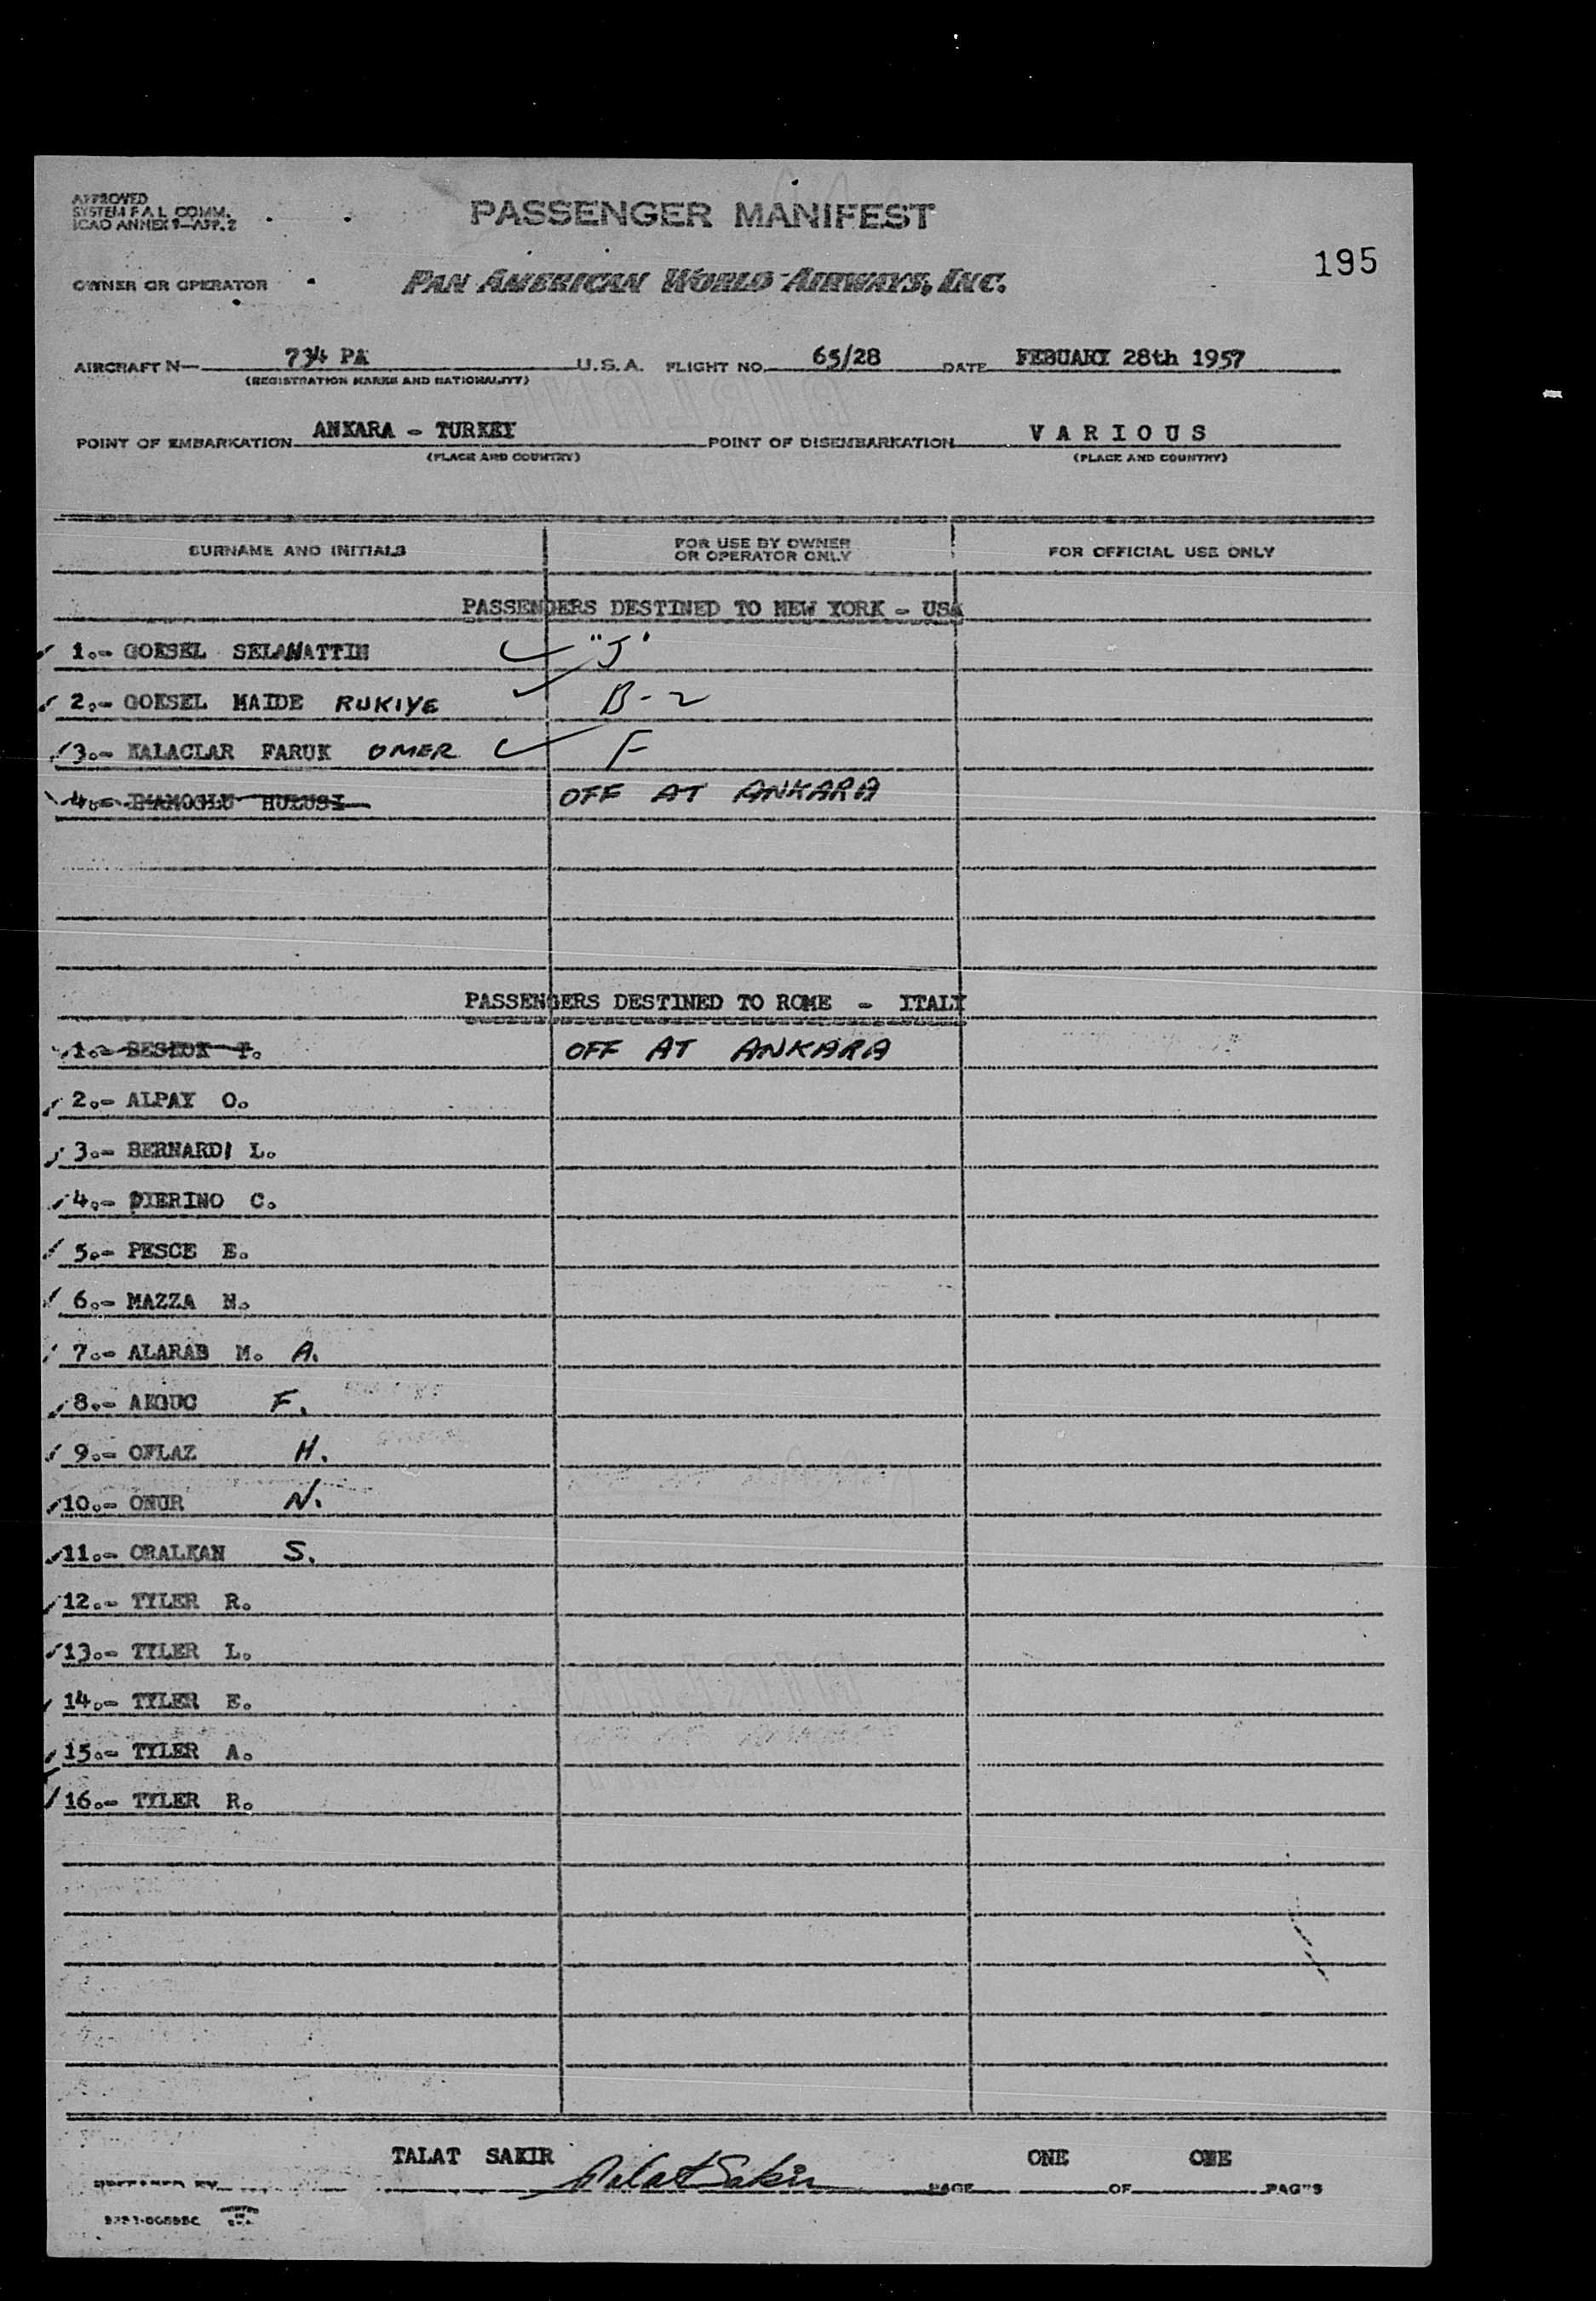 APPROVED
SYSTEM F.A.L. COMM.
ICAO ANNEX 9—APP. 2
PASSENGER MANIFEST
195
OWNER OR OPERATOR
PAN AMERICAN WORLD AIRWAYS, INC.
AIRCRAFT N— 734 PA U.S.A. FLIGHT NO. 65/28 DATE FEBUARY 28th 1957
(REGISTRATION MARKS AND NATIONALITY)
POINT OF EMBARKATION ANKARA - TURKEY POINT OF DISEMBARKATION V A R I O U S
(PLACE AND COUNTRY) (PLACE AND COUNTRY)
SURNAME AND INITIALS FOR USE BY OWNER OR OPERATOR ONLY FOR OFFICIAL USE ONLY
PASSENGERS DESTINED TO NEW YORK - USA
1.- GOKSEL SELAHATTIN "J"
2.- GOKSEL MAIDE RUKIYE B-2
3.- KALACLAR FARUK OMER F
4.- IMAMOGLU HULUSI OFF AT ANKARA
PASSENGERS DESTINED TO ROME - ITALY
1.- T. OFF AT ANKARA
2.- ALPAY O.
3.- BERNARDI L.
4.- PIERINO C.
5.- PESCE E.
6.- MAZZA N.
7.- ALARAB M. A.
8.- F.
9.- OFLAZ H.
10.- ONUR N.
11.- ORALKAN S.
12.- TYLER R.
13.- TYLER L.
14.- TYLER E.
15.- TYLER A.
16.- TYLER R.
TALAT SAKIR Talat Sakir ONE ONE
PREPARED BY PAGE OF PAGES
PRINTED IN U.S.A.